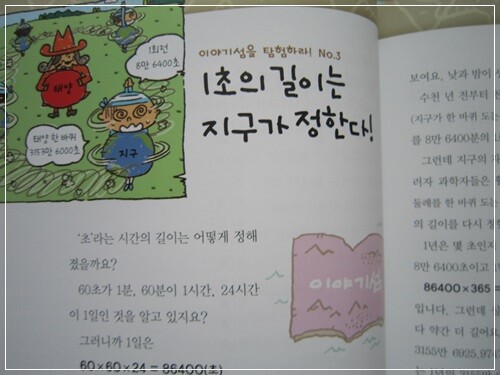 1회전
8만 6400초
태양
태양 한 바퀴
3153만 6000초
지구
이야기섬을 탐험하라! No.3
1초의 길이는
지구가 정한다!
'초'라는 시간의 길이는 어떻게 정해
졌을까요?
60초가 1분, 60분이 1시간, 24시간
이 1일인 것을 알고 있지요?
그러니까 1일은
60×60×24=86400(초)
이야기섬
보여요. 낮과 밤이
수천 년 전부터
(지구가 한 바퀴 도는
를 8만 6400분의
그런데 지구의
러자 과학자들은
둘레를 한 바퀴 도는
의 길이를 다시 정
1년은 몇 초인지
8만 6400초이고 1
86400×365=
입니다. 그런데
다 약간 더 길어요.
3155만 6925.974